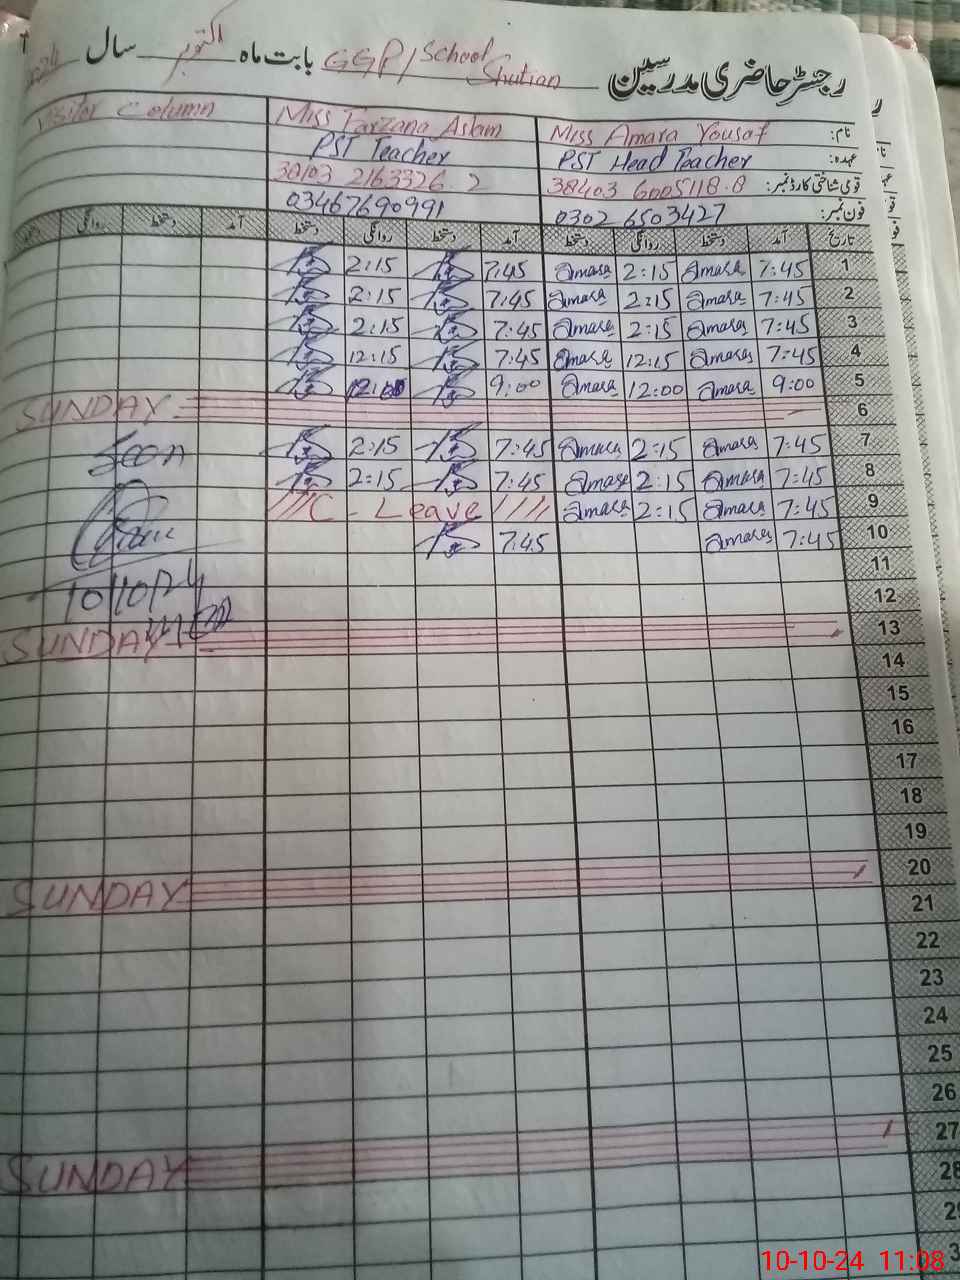 رجسٹر حاضری مدرسین GGP/School Shutian بابت ماہ اکتوبر سال
نام: Miss Amara Yousaf Miss Farzana Aslam Visitor Column
عہدہ: PST Head Teacher PST Teacher
قومی شناختی کارڈ نمبر: 38403 6005118.8 38103 2163326.2
فون نمبر: 0302 6503427 03467690991
تاریخ آمد دستخط روانگی دستخط آمد دستخط روانگی دستخط آمد دستخط روانگی دستخط
1 7:45 Amara 2:15 Amara 7:45 2:15
2 7:45 Amara 2:15 Amara 7:45 2:15
3 7:45 Amara 2:15 Amara 7:45 2:15
4 7:45 Amara 12:15 Amara 7:45 12:15
5 9:00 Amara 12:00 Amara 9:00 12:00
6 SUNDAY
7 7:45 Amara 2:15 Amara 7:45 2:15 Seen
8 7:45 Amara 2:15 Amara 7:45 2:15
9 7:45 Amara 2:15 Amara C-Leave
10 7:45 Amara 7:45
11
12 10/10/24
13 SUNDAY
14
15
16
17
18
19
20 SUNDAY
21
22
23
24
25
26
27 SUNDAY
28
29
10-10-24 11:08